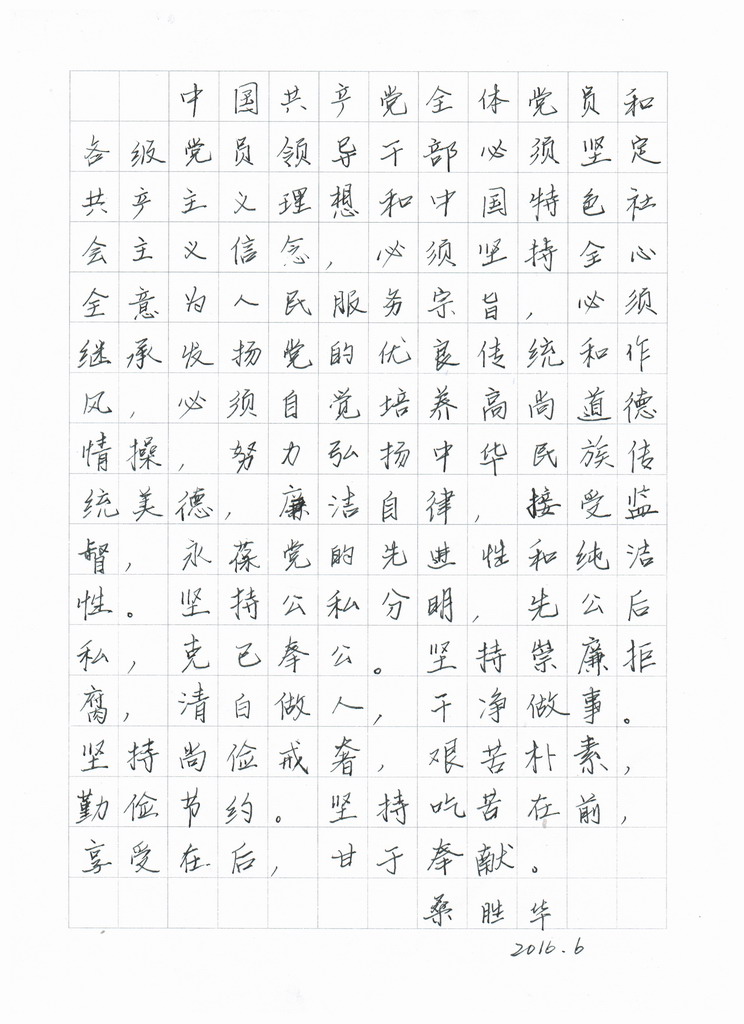 中国共产党全体党员和
各级党员领导干部必须坚定
共产主义理想和中国特色社
会主义信念，必须坚持全心
全意为人民服务宗旨，必须
继承发扬党的优良传统和作
风，必须自觉培养高尚道德
情操，努力弘扬中华民族传
统美德，廉洁自律，接受监
督，永葆党的先进性和纯洁
性。坚持公私分明，先公后
私，克已奉公。坚持崇廉拒
腐，清白做人，干净做事。
坚持尚俭戒奢，艰苦朴素，
勤俭节约。坚持吃苦在前，
享受在后，甘于奉献。
桑胜华
2016.6